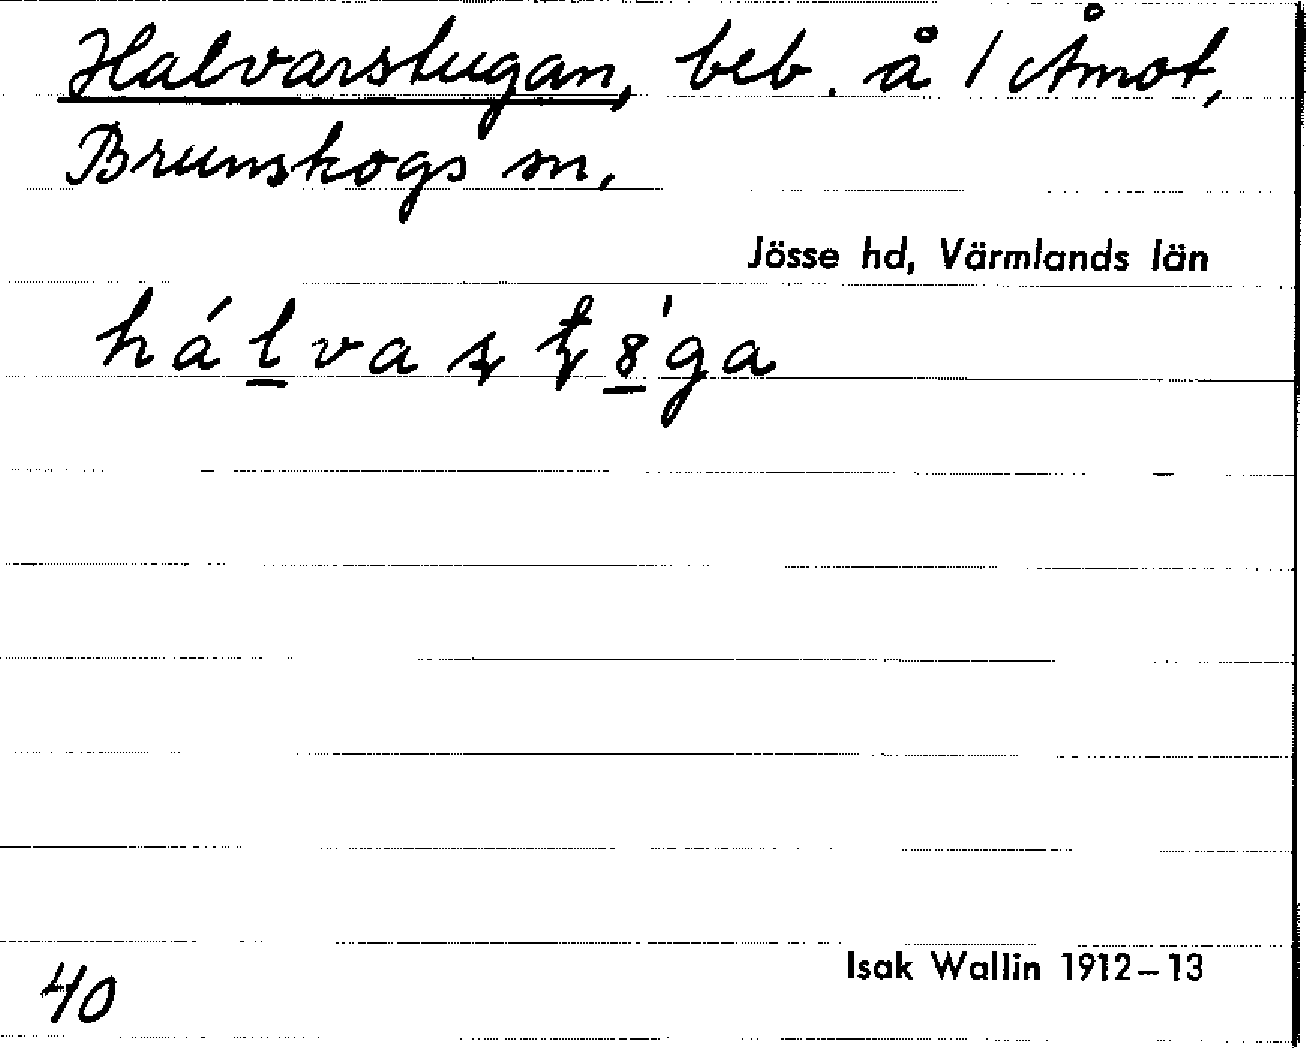 Halvarstugan, beb. å 1 Åmot,
Brunskogs sn,
Jösse hd, Värmlands län
Isak Wallin 1912–13
40